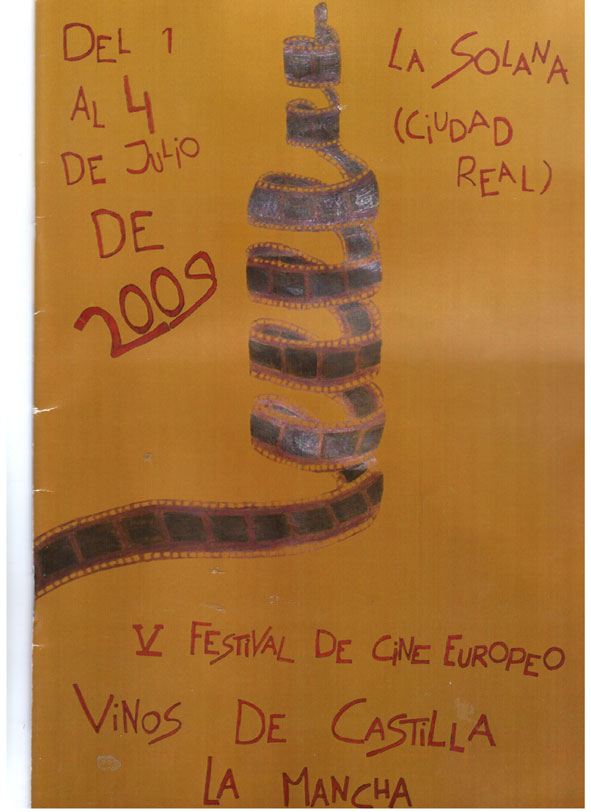 DEL 1
AL 4
DE JULIO
DE
2009
LA SOLANA
(CIUDAD
REAL)
V FESTIVAL DE CINE EUROPEO
VINOS DE CASTILLA
LA MANCHA